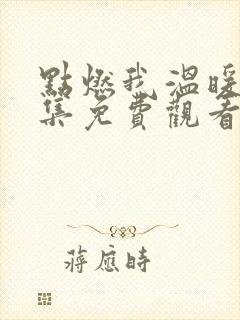 點燃我溫暖
集免費觀看
蔣應時